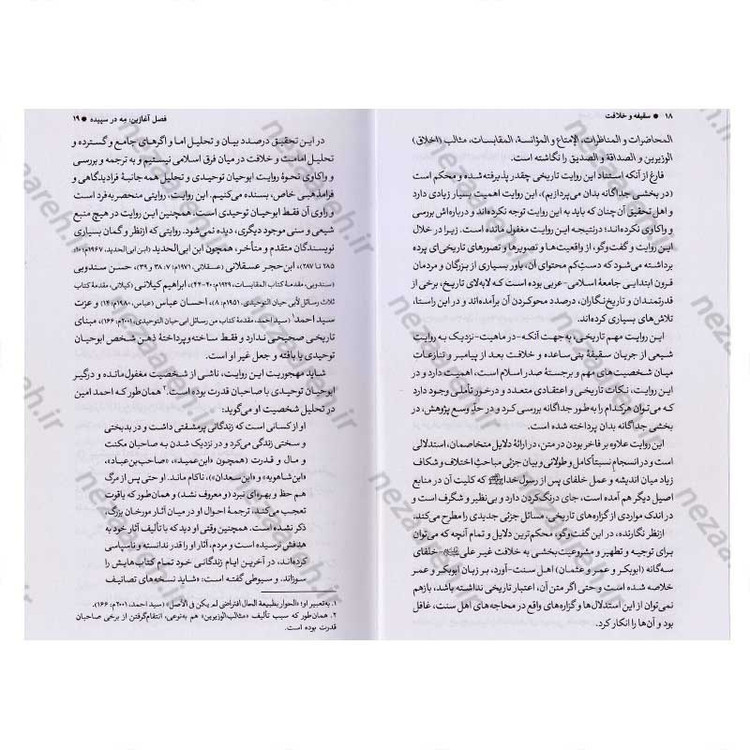 ۱۸ ● سقیفه و خلافت
المحاضرات و المناظرات، الإمتاع و المؤانسة، المقابسات، مثالب (اخلاق)
الوزیرین و الصداقة و الصدیق را نگاشته است.
فارغ از آنکه استناد این روایت تاریخی چقدر پذیرفته شده و محکم است
(در بخشی جداگانه بدان می‌پردازیم)، این روایت اهمیت بسیار زیادی دارد
و اهل تحقیق آن‌چنان که باید به این روایت توجه نکرده‌اند و درباره‌اش بررسی
و واکاوی نکرده‌اند؛ درنتیجه این روایت مغفول مانده است. زیرا در خلال
این روایت و گفت‌وگو، از واقعیت‌ها و تصویرها و تصورهای تاریخی‌ای پرده
برداشته می‌شود که دست‌کم محتوای آن، باور بسیاری از بزرگان و مردمان
قرون ابتدایی جامعهٔ اسلامی-عربی بوده است که لابه‌لای تاریخ، برخی از
قدرتمندان و تاریخ‌نگاران، درصدد محوکردن آن برآمده‌اند و در این راستا،
تلاش‌های بسیاری کرده‌اند.
این روایت مهم تاریخی، به جهت آنکه-در ماهیت-نزدیک به روایت
شیعی از جریان سقیفهٔ بنی‌ساعده و خلافت بعد از پیامبر و تنازعات
میان شخصیت‌های مهم و برجستهٔ صدر اسلام است، اهمیت دارد و در
این روایت، نکات تاریخی و اعتقادی متعدد و درخور تأملی وجود دارد
که می‌توان هرکدام را به‌طور جداگانه بررسی کرد و در حدّ وسع پژوهش، در
بخشی جداگانه بدان پرداخته شده است.
این روایت علاوه بر فاخر بودن در متن، در ارائهٔ دلایل متخاصمان، استدلالی
است و در انسجام نسبتاً کامل و طولانی و بیان جزئی مباحثِ اختلاف و شکاف
زیاد میان اندیشه و عمل خلفای پس از رسول خدا ﷺ که کلیت آن در منابع
اصیل دیگر هم آمده است، جای درنگ‌کردن دارد و بی‌نظیر و شگرف است و
در اندک مواردی از گزاره‌های تاریخی، مسائل جزئی جدیدی را مطرح می‌کند.
ازنظر نگارنده، در این گفت‌وگو، محکم‌ترین دلایل و تمام آنچه که می‌توان
برای توجیه و تطهیر و مشروعیت‌بخشی به خلافت غیر علی خلفای
سه‌گانه (ابوبکر و عمر و عثمان) اهل سنت-آورد، بر زبان ابوبکر و عمر
خلاصه شده است و حتی اگر متن آن، اعتبار تاریخی نداشته باشد، بازهم
نمی‌توان از این استدلال‌ها و گزاره‌های واقع در محاجه‌های اهل سنت، غافل
بود و آن‌ها را انکار کرد.
فصل آغازین: مِه در سپیده ● ۱۹
در این تحقیق درصدد بیان و تحلیل اما و اگرهای جامع و گسترده و
تحلیل امامت و خلافت در میان فرق اسلامی نیستیم و به ترجمه و بررسی
و واکاوی نحوهٔ روایت ابوحیان توحیدی و تحلیل همه‌جانبهٔ فرادیدگاهی و
فرامذهبی خاص، بسنده می‌کنیم. این روایت، روایتی منحصربه‌فرد است
و راوی آن فقط ابوحیان توحیدی است. همچنین این روایت در هیچ منبع
شیعی و سنی موجود دیگری، دیده نمی‌شود. روایتی که ازنظر و گمان بسیاری
نویسندگان متقدم و متأخر، همچون ابن ابی‌الحدید (ابن ابی‌الحدید، ۱۹۶۷م، ۱۰:
۲۸۵ تا ۲۸۷)، ابن حجر عسقلانی (عسقلانی، ۱۹۷۱م، ۷: ۳۸ و ۳۹)، حسن سندوبی
(سندوبی، مقدمهٔ کتاب المقابسات، ۱۹۲۹م: ۲۰-۲۲)، ابراهیم کیلانی (کیلانی، مقدمهٔ کتاب
ثلاث رسائل لأبی حیان التوحیدی، ۱۹۵۱م: ۸)، احسان عباس (عباس، ۱۹۸۰م: ۱۴) و عزت
سید احمد¹ (سید احمد، مقدمهٔ کتاب من رسائل ابی حیان التوحیدی، ۲۰۰۱م: ۱۶۶)، مبنای
تاریخی صحیحی ندارد و فقط ساخته و پرداختهٔ ذهن شخص ابوحیان
توحیدی یا بافته و جعل غیر او است.
شاید مهجوریت این روایت، ناشی از شخصیت مغفول‌مانده و درگیر
ابوحیان توحیدی با صاحبان قدرت بوده است.² همان‌طور که احمد امین
در تحلیل شخصیت او می‌گوید:
او از کسانی است که زندگانی پرمشقتی داشت و در بدبختی
و سختی زندگی می‌کرد و در نزدیک شدن به صاحبان مکنت
و مال و قدرت (همچون «ابن‌عمید»، «صاحب‌بن‌عباد»،
«ابن‌شاهویه» و «ابن‌سعدان»)، ناکام ماند. او حتی پس از مرگ
هم حظ و بهره‌ای نبرد (و معروف نشد) و همان‌طور که یاقوت
تعجب می‌کند، ترجمهٔ احوال او در میان آثار مورخان بزرگ،
ذکر نشده است. همچنین وقتی او دید که با تألیف آثار خود به
هدفش نرسیده است و مردم، آثار او را قدر ندانسته و ناسپاسی
کرده‌اند، در آخرین ایام زندگانی خود، تمام کتاب‌هایش را
سوزاند. و سیوطی گفته است: «شاید نسخه‌های تصانیف
۱. به‌تعبیر او: «الحوار بطبیعة الحال افتراضی لم یکن فی الأصل» (سید احمد، ۲۰۰۱م: ۱۶۶).
۲. همان‌طور که سبب تألیف «مثالب‌الوزیرین» هم به‌نوعی، انتقام‌گرفتن از برخی صاحبان
قدرت بوده است.
nezaareh.ir